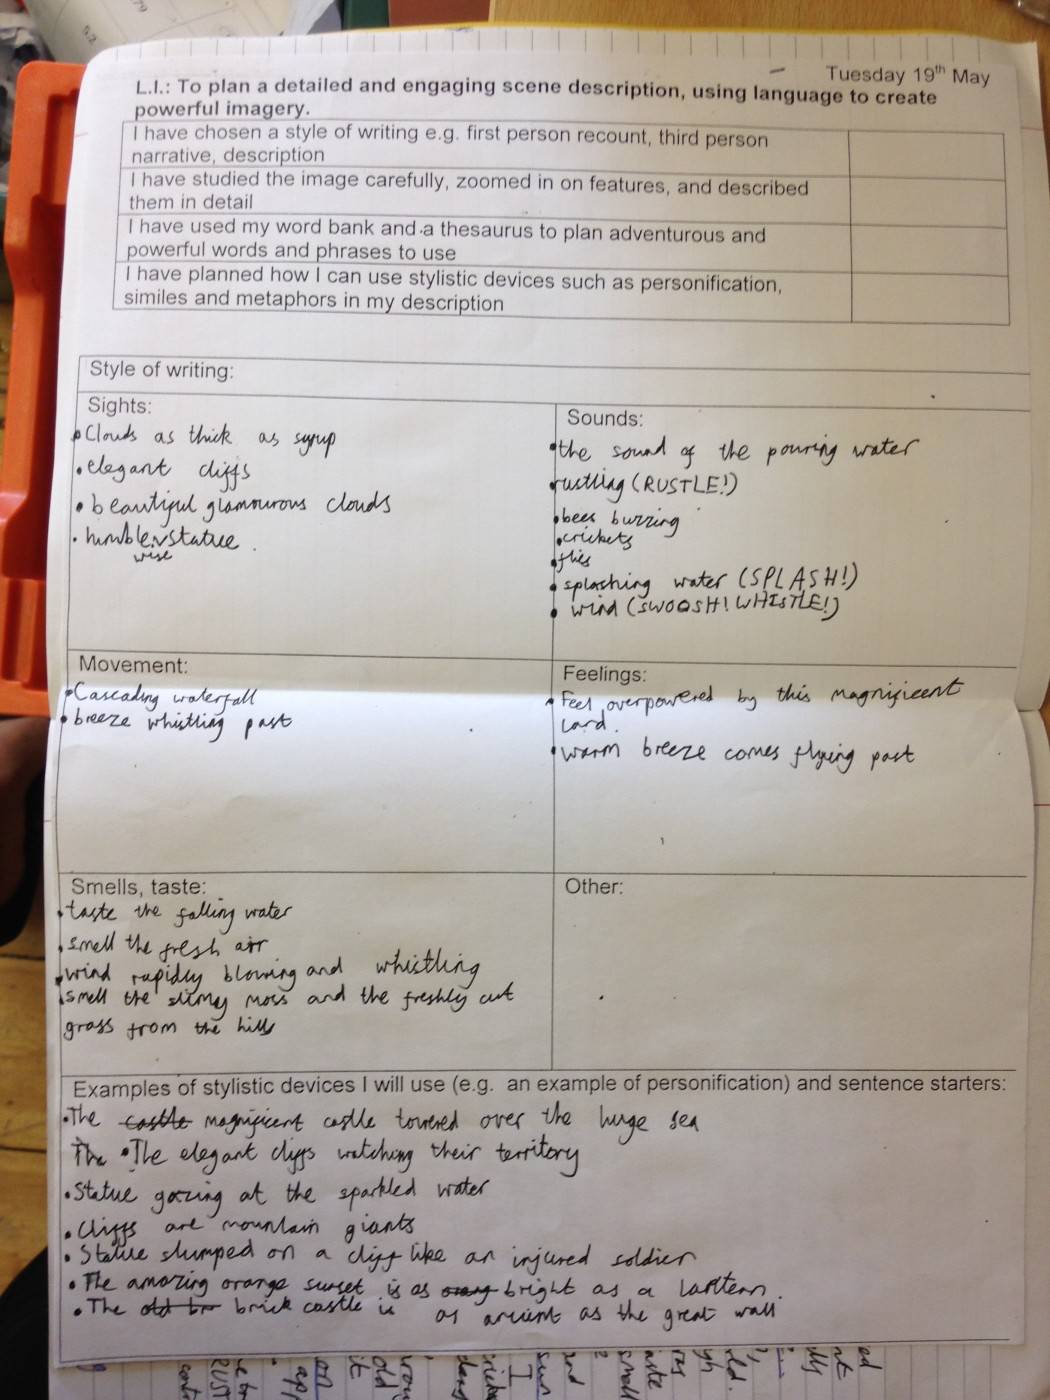 Tuesday 19th May
L.I.: To plan a detailed and engaging scene description, using language to create
powerful imagery.
I have chosen a style of writing e.g. first person recount, third person
narrative, description
I have studied the image carefully, zoomed in on features, and described
them in detail
I have used my word bank and a thesaurus to plan adventurous and
powerful words and phrases to use
I have planned how I can use stylistic devices such as personification,
similes and metaphors in my description
Style of writing:
Sights:
• Clouds as thick as syrup
• elegant cliffs
• beautiful glamourous clouds
• humble statue
wise
Sounds:
• the sound of the pouring water
• rustling (RUSTLE!)
• bees buzzing
• crickets
• flies
• splashing water (SPLASH!)
• wind (SWOOSH! WHISTLE!)
Movement:
• Cascading waterfall
• breeze whistling past
Feelings:
• Feel overpowered by this magnificent
land.
• warm breeze comes flying past
Smells, taste:
• taste the falling water
• smell the fresh air
• wind rapidly blowing and whistling
• smell the slimey moss and the freshly cut
grass from the hills
Other:
Examples of stylistic devices I will use (e.g. an example of personification) and sentence starters:
• The castle magnificent castle towered over the huge sea
The • The elegant cliffs watching their territory
• Statue gazing at the sparkled water
• Cliffs are mountain giants
• Statue slumped on a cliff like an injured soldier
• The amazing orange sunset is as orang bright as a lantern.
• The old br brick castle is as ancient as the great wall